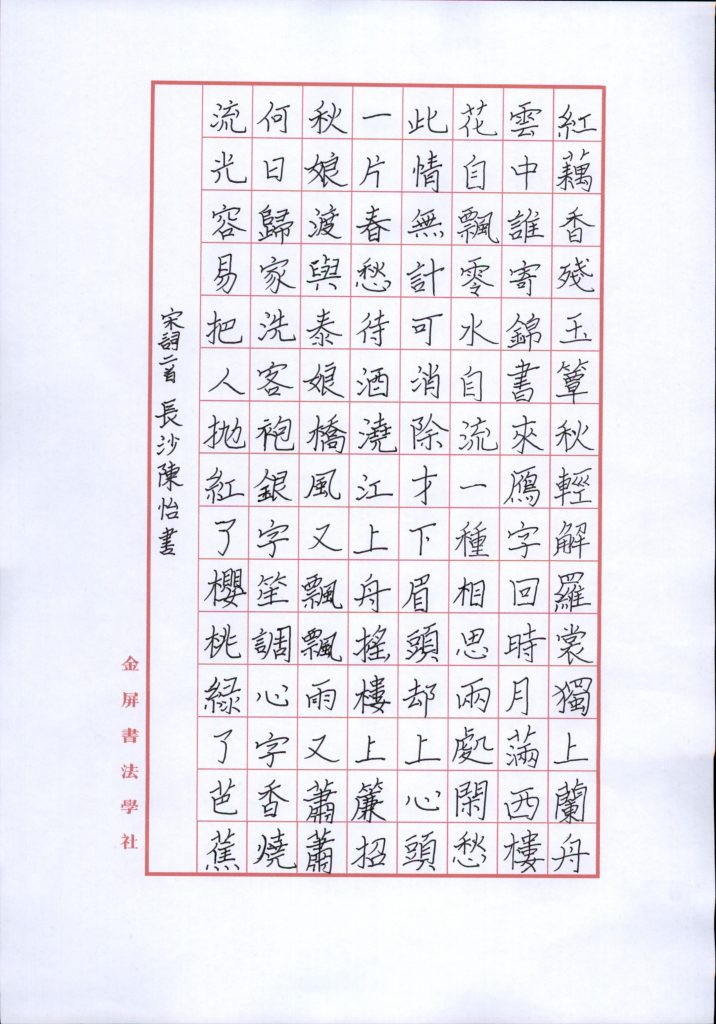 紅藕香殘玉簟秋輕解羅裳獨上蘭舟
雲中誰寄錦書來鴈字回時月滿西樓
花自飄零水自流一種相思兩處閑愁
此情無計可消除才下眉頭却上心頭
一片春愁待酒澆江上舟搖樓上簾招
秋娘渡與泰娘橋風又飄飄雨又蕭蕭
何日歸家洗客袍銀字笙調心字香燒
流光容易把人拋紅了櫻桃綠了芭蕉
宋詞二首 長沙陳怡書
金屏書法學社